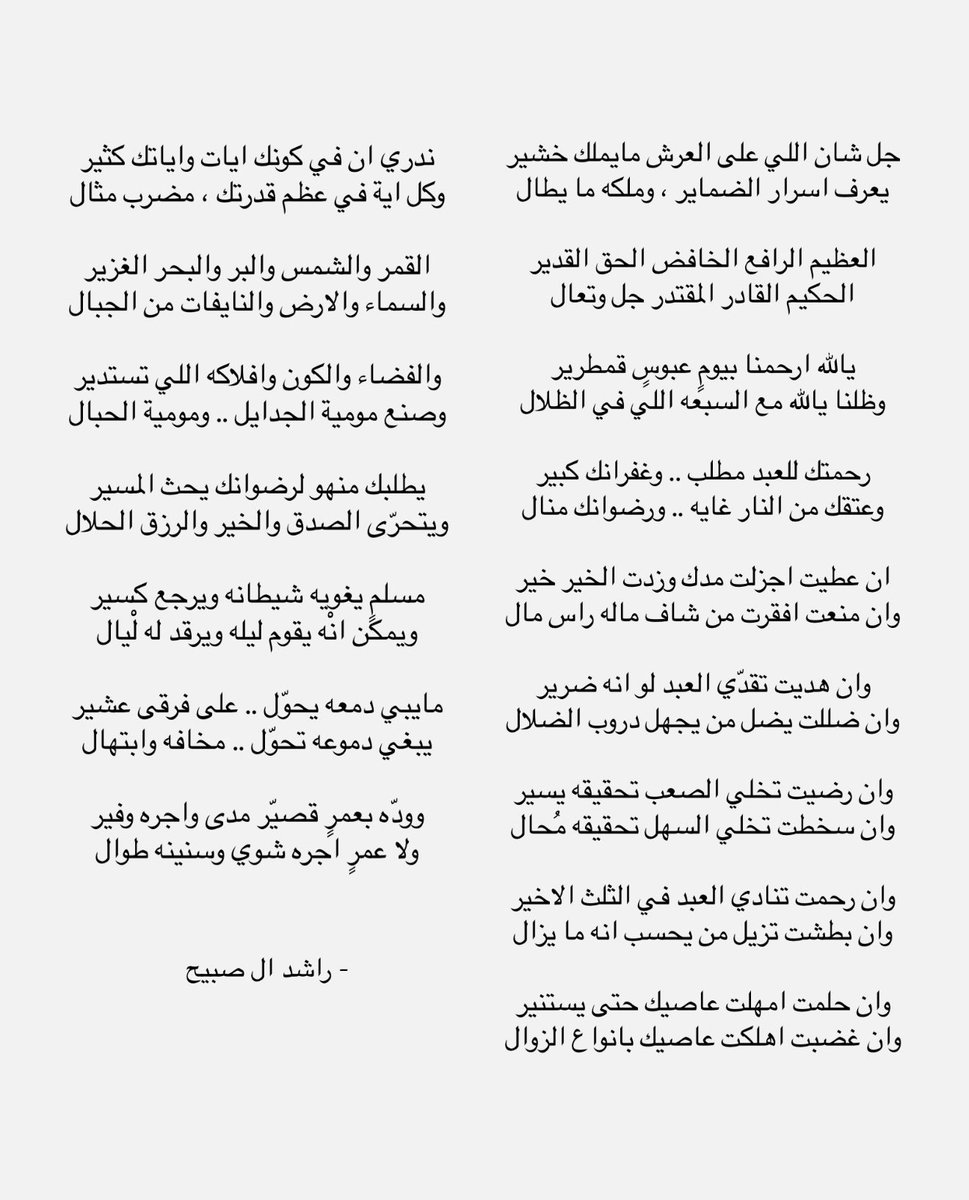 جل شان اللي على العرش مايملك خشير
يعرف اسرار الضماير ، وملكه ما يطال
العظيم الرافع الخافض الحق القدير
الحكيم القادر المقتدر جل وتعال
يالله ارحمنا بيومٍ عبوسٍ قمطرير
وظلنا يالله مع السبعه اللي في الظلال
رحمتك للعبد مطلب .. وغفرانك كبير
وعتقك من النار غايه .. ورضوانك منال
ان عطيت اجزلت مدك وزدت الخير خير
وان منعت افقرت من شاف ماله راس مال
وان هديت تقدّي العبد لو انه ضرير
وان ضللت يضل من يجهل دروب الضلال
وان رضيت تخلي الصعب تحقيقه يسير
وان سخطت تخلي السهل تحقيقه مُحال
وان رحمت تنادي العبد في الثلث الاخير
وان بطشت تزيل من يحسب انه ما يزال
وان حلمت امهلت عاصيك حتى يستنير
وان غضبت اهلكت عاصيك بانواع الزوال
ندري ان في كونك ايات واياتك كثير
وكل اية في عظم قدرتك ، مضرب مثال
القمر والشمس والبر والبحر الغزير
والسماء والارض والنايفات من الجبال
والفضاء والكون وافلاكه اللي تستدير
وصنع مومية الجدايل .. ومومية الحبال
يطلبك منهو لرضوانك يحث المسير
ويتحرّى الصدق والخير والرزق الحلال
مسلمٍ يغويه شيطانه ويرجع كسير
ويمكن انْه يقوم ليله ويرقد له لْيال
مايبي دمعه يحوّل .. على فرقى عشير
يبغي دموعه تحوّل .. مخافه وابتهال
وودّه بعمرٍ قصيّر مدى واجره وفير
ولا عمرٍ اجره شوي وسنينه طوال
- راشد ال صبيح